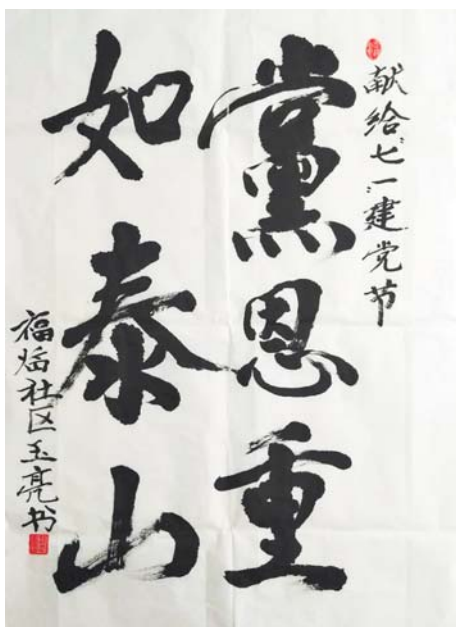 献给"七·一"建党节
黨恩重
如泰山
福焰社区玉亮书